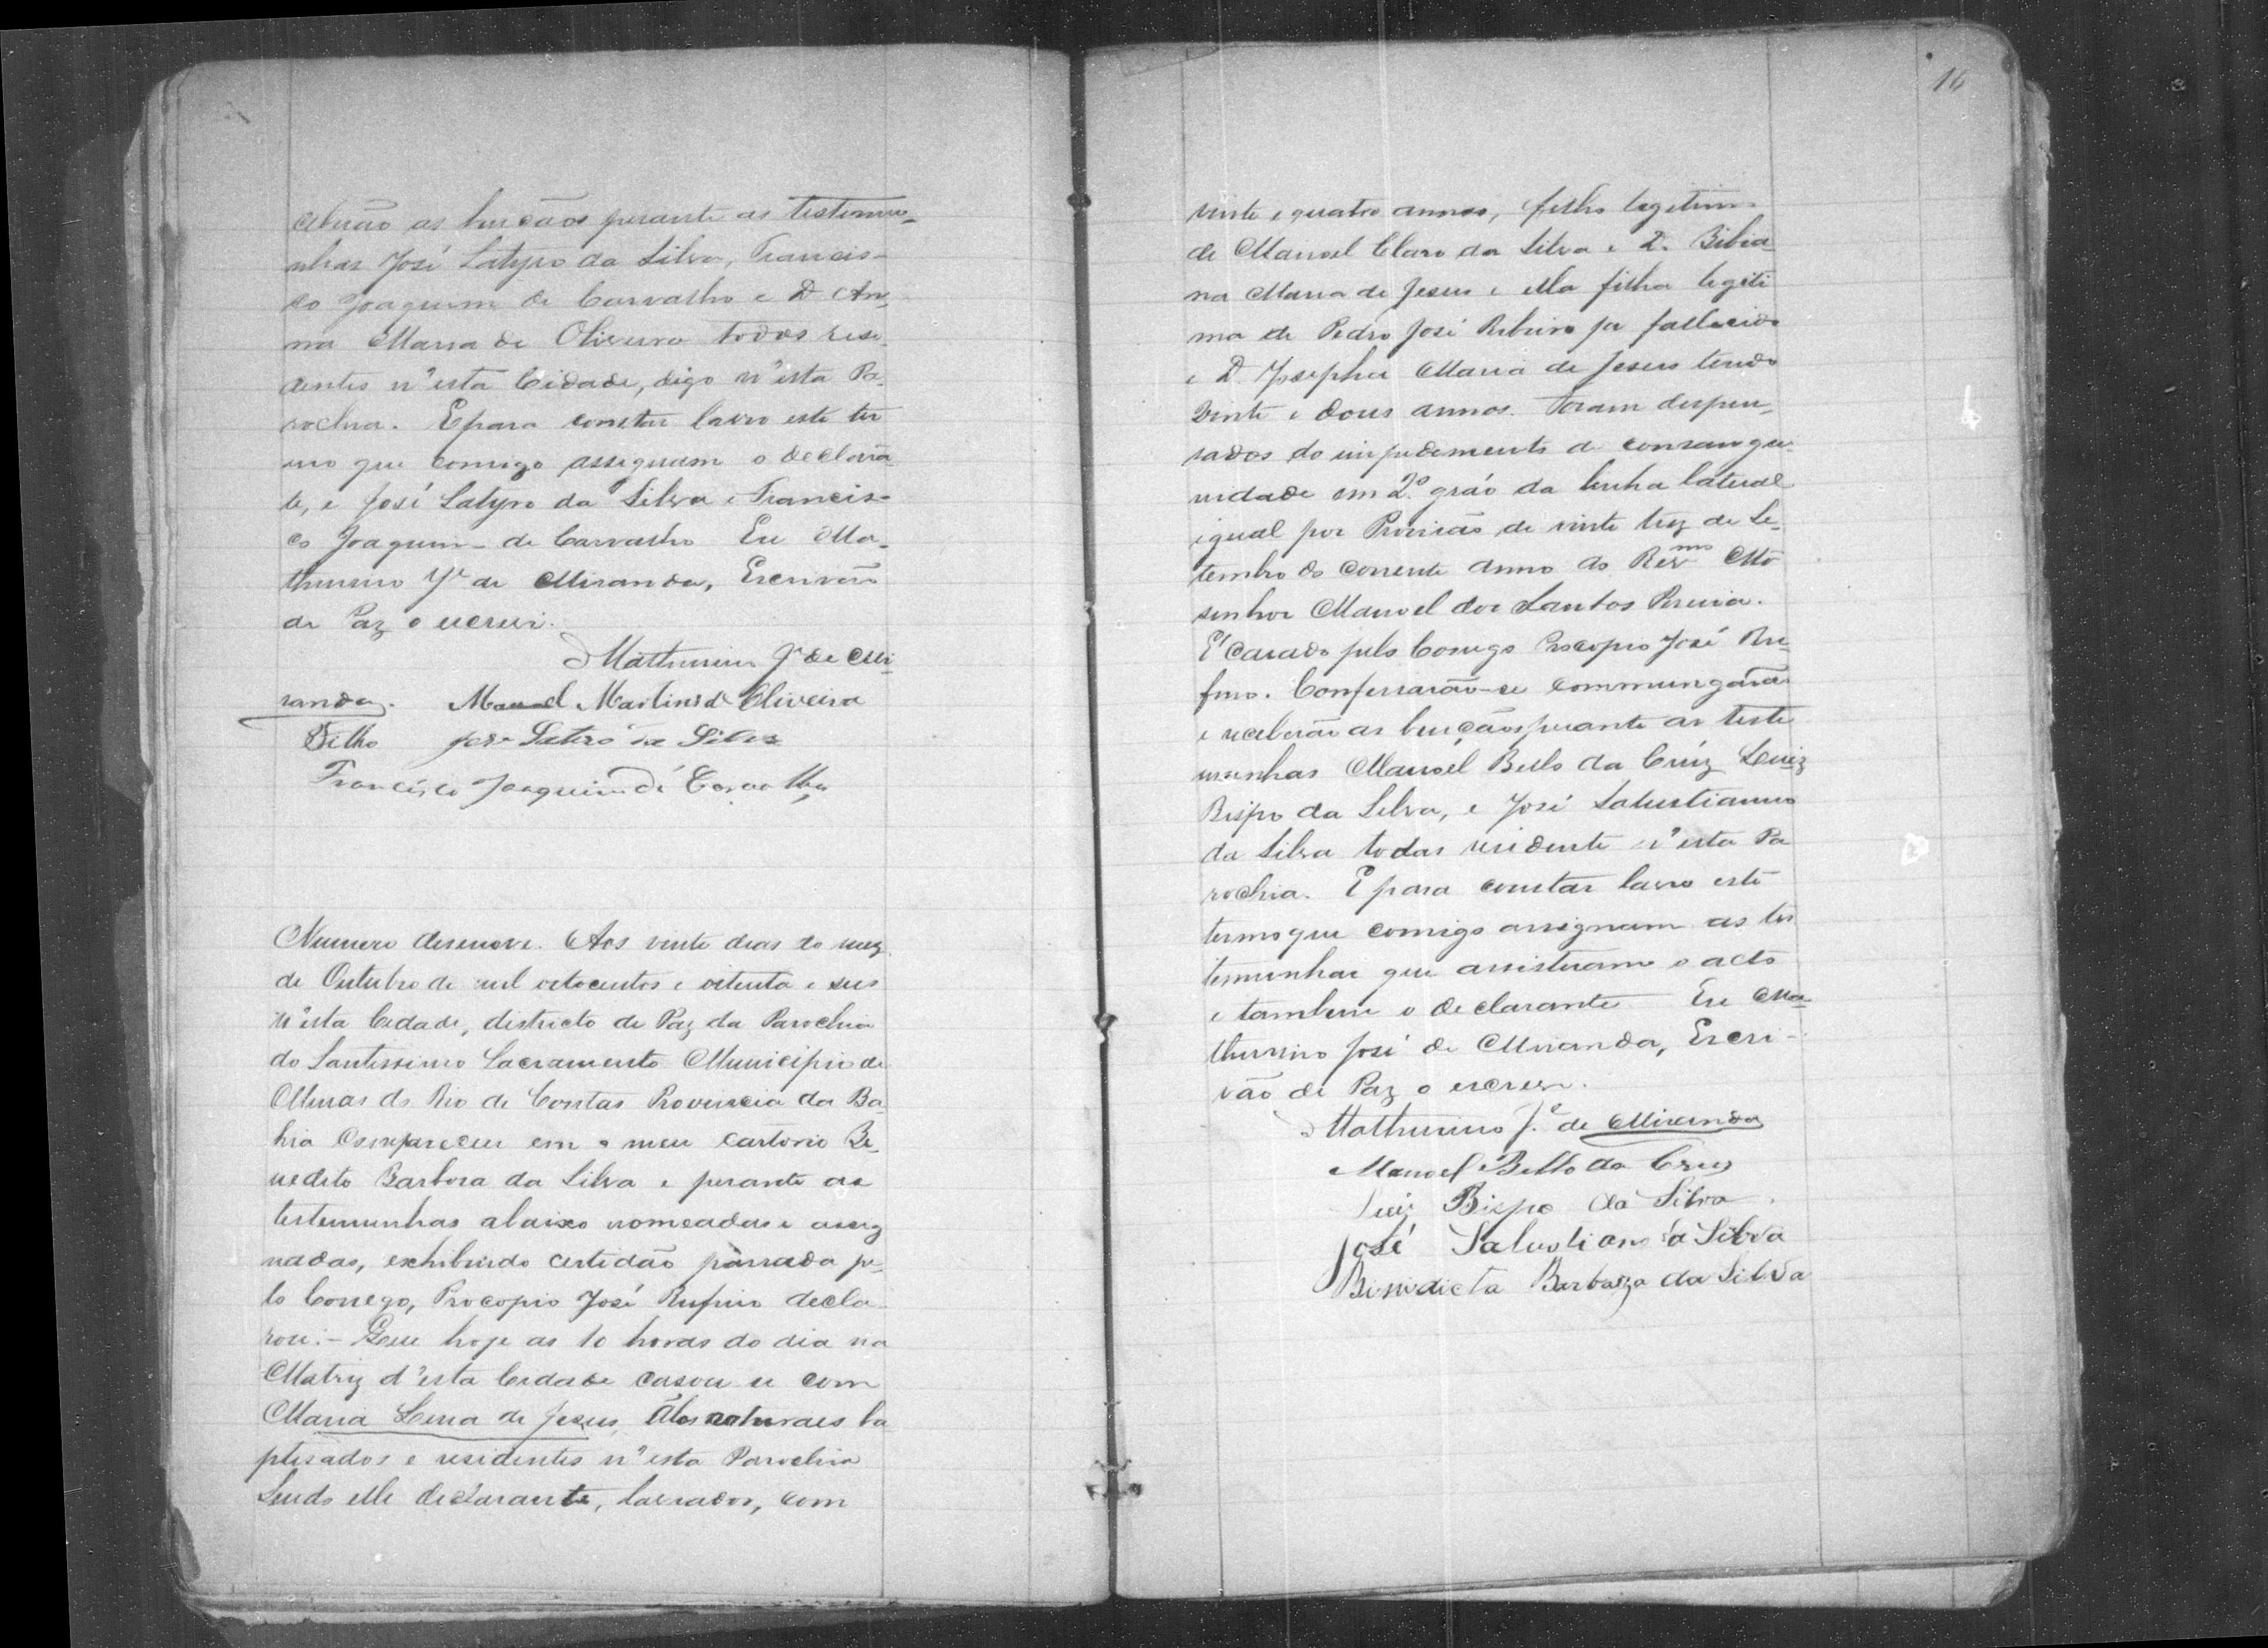 ceberão as bençãos perante as testemu-
nhas José Satyro da Silva, Francis-
co Joaquim de Carvalho e D. An-
na Maria de Oliveira todos resi-
dentes n'esta Cidade, digo n'esta Pa-
rochia. E para constar lavro este ter
mo que comigo assignam o declaran
te, e José Satyro da Silva e Francis-
co Joaquim de Carvalho Eu Ma-
thurino J.e de Miranda, Escrivão
de Paz o escrevi.
Mathurino J.e de Mi-
randa. Manoel Martins de Oliveira
Filho José Satiro da Silva
Francisco Joaquim de Carvalho
Numero desenove. Aos vinte dias do mez
de Outubro de mil oitocentos e oitenta e seis
n'esta Cidade, districto de Paz da Parochia
do Santissimo Sacramento Municipio de
Minas do Rio de Contas Provincia da Ba-
hia Compareceu em o meu cartorio Be-
nedito Barbosa da Silva e perante as
testemunhas abaixo nomeadas e assig
nadas, exhibindo certidão passada pe-
lo Conego, Procopio José Rufino decla-
rou:- Que hoje as 10 horas do dia na
Matriz d'esta Cidade casou se com
Maria Lina de Jesus, naturaes ba
ptisados e residentes n'esta Parochia
Sendo elle declarante, lavrador, com
16
vinte e quatro annos, filho legitimo
de Manoel Claro da Silva e D. Bibia-
na Maria de Jesus e ella filha legiti
ma de Pedro José Ribeiro ja fallecido
e D. Josepha Maria de Jesus tendo
vinte e dous annos. Foram dispen-
sados do impedimento de consangui-
nidade em 2º gráo da linha lateral
igual por Provisão de vinte trez de Se-
tembro do corrente anno do Revmo Mo
senhor Manoel dos Santos Pereira.
E Casado pelo Conego Procopio José Ru-
fino. Confessarão-se commungarão
e receberão as bençãos perante as teste
munhas Manoel Bello da Cruz Luiz
Bispo da Silva, e José Salustianno
da Silva todas residente n'esta Pa
rochia. E para constar lavro este
termo que comigo assignam as tes
temunhas que assistiram o acto
e tambem o declarante Eu Ma-
thurino José de Miranda, Escri-
vão de Paz o escrevi.
Mathurino J.e de Miranda
Manoel Bello da Cruz
Luiz Bispo da Silva
José Salustiano da Silva
Binidicta Barbarza da Silva